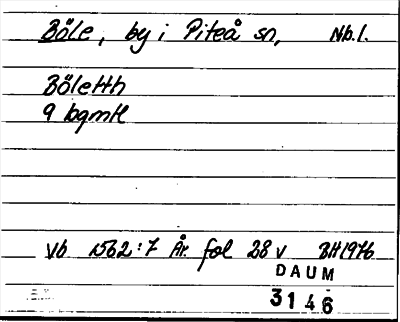 Böle, by i Piteå sn, Nb.l.
Böletth
9 bgmtl
Vb 1562:7 År. fol 28 v BH1976
DAUM
3146